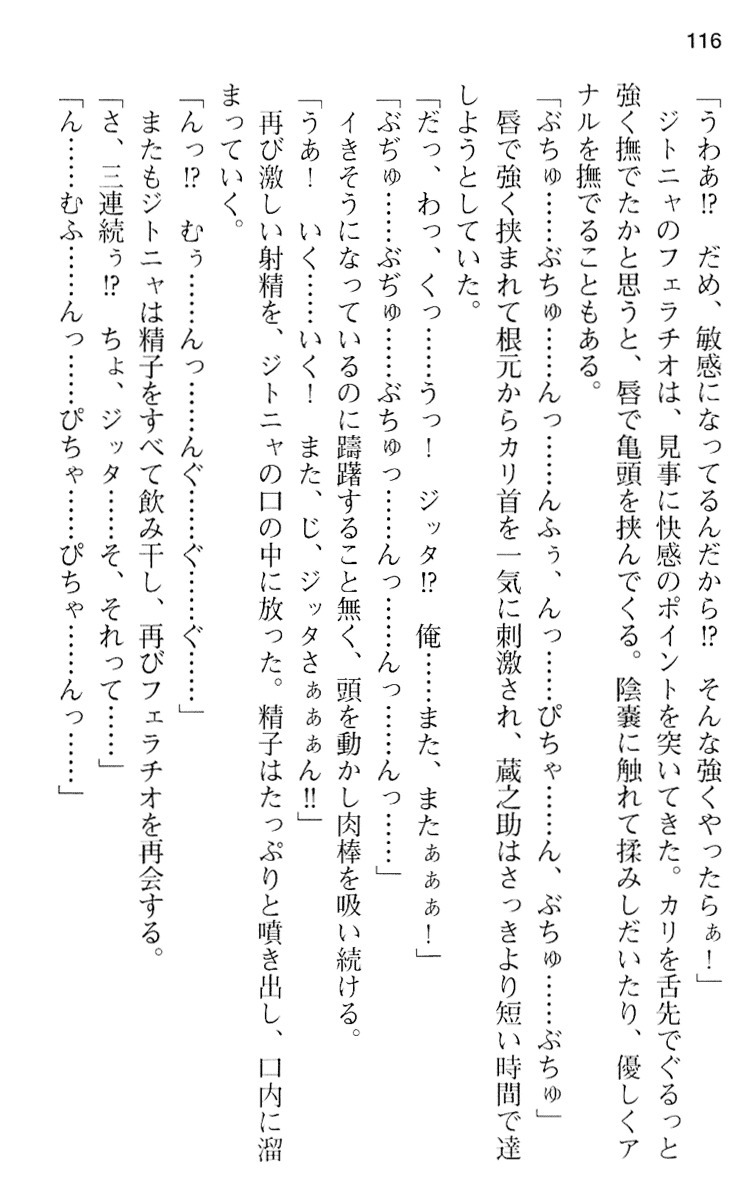 116
「うわあ!?　だめ、敏感になってるんだから!?　そんな強くやったらぁ！」
　ジトニャのフェラチオは、見事に快感のポイントを突いてきた。カリを舌先でぐるっと
強く撫でたかと思うと、唇で亀頭を挟んでくる。陰嚢に触れて揉みしだいたり、優しくア
ナルを撫でることもある。
「ぶちゅ……ぶちゅ……んっ……んふぅ、んっ……ぴちゃ……ん、ぶちゅ……ぶちゅ」
　唇で強く挟まれて根元からカリ首を一気に刺激され、蔵之助はさっきより短い時間で達
しようとしていた。
「だっ、わっ、くっ……うっ！　ジッタ!?　俺……また、またぁぁぁ！」
「ぶぢゅ……ぶぢゅ……ぶちゅっ……んっ……んっ……んっ……」
　イきそうになっているのに躊躇すること無く、頭を動かし肉棒を吸い続ける。
「うあ！　いく……いく！　また、じ、ジッタさぁぁぁん!!」
　再び激しい射精を、ジトニャの口の中に放った。精子はたっぷりと噴き出し、口内に溜
まっていく。
「んっ!?　むぅ……んっ……んぐ……ぐ……ぐ……」
　またもジトニャは精子をすべて飲み干し、再びフェラチオを再会する。
「さ、三連続ぅ!?　ちょ、ジッタ……そ、それって……」
「ん……むふ……んっ……ぴちゃ……ぴちゃ……んっ……」